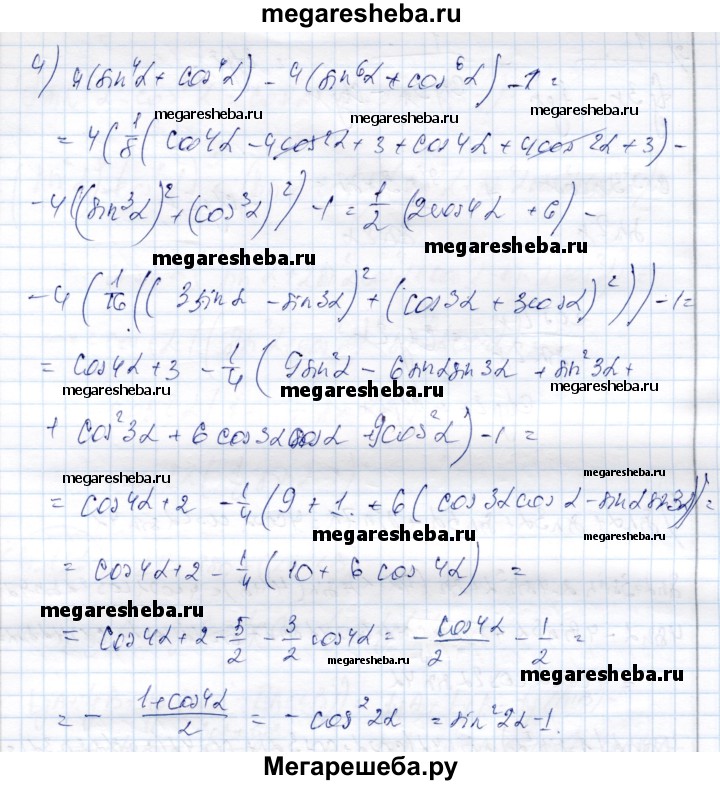 megaresheba.ru
4) 4(sin⁴α + cos⁴α) - 4(sin⁶α + cos⁶α) - 1 =
megaresheba.ru megaresheba.ru
= 4(1/8(cos4α - 4cos2α + 3 + cos4α + 4cos2α + 3) -
- 4((sin³α)² + (cos³α)²) - 1 = 1/2 (2cos4α + 6) -
megaresheba.ru megaresheba.ru
- 4(1/16((3sinα - sin3α)² + (cos3α + 3cosα)²)) - 1 =
= cos4α + 3 - 1/4(9sin²α - 6sinαsin3α + sin²3α +
megaresheba.ru megaresheba.ru megaresheba.ru
+ cos²3α + 6cos3αcosα + 9cos²α) - 1 =
megaresheba.ru megaresheba.ru
= cos4α + 2 - 1/4(9 + 1 + 6(cos3αcosα - sinαsin3α)) =
megaresheba.ru megaresheba.ru
= cos4α + 2 - 1/4(10 + 6cos4α) =
megaresheba.ru megaresheba.ru
= cos4α + 2 - 5/2 - 3/2 cos4α = - cos4α/2 - 1/2 =
megaresheba.ru megaresheba.ru megaresheba.ru
= - (1 + cos4α)/2 = - cos²2α = sin²2α - 1.
Мегарешеба.ру